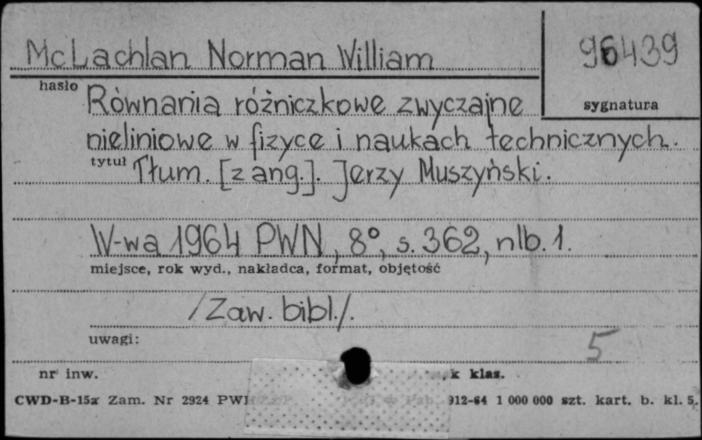 McLachlan Norman William
96439
hasło
sygnatura
Równania różniczkowe zwyczajne
nieliniowe w fizyce i naukach technicznych.
tytuł Tłum. [z ang.]. Jerzy Muszyński.
W-wa 1964 PWN, 8°, s. 362, nlb. 1.
miejsce, rok wyd., nakładca, format, objętość
/Zaw. bibl./.
uwagi:
5
nr inw.
k klas.
CWD-B-15a Zam. Nr 2924 PW 912-64 1 000 000 szt. kart. b. kl. 5.